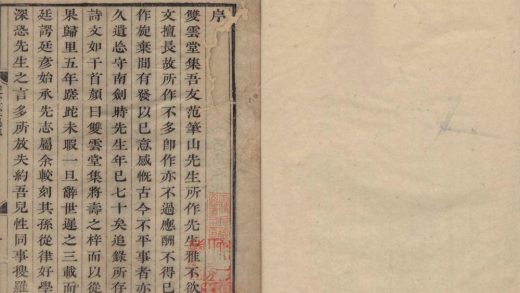 序
雙雲堂集吾友范筆山先生所作先生雅不欲
文擅長故所作不多卽作亦不過應酬不得已
作旋棄間有發以已意感慨古今不平事者亦
久遺忘守南劍時先生年已七十矣追錄所存
詩文如干首顏曰雙雲堂集將壽之梓而以從
歸里五年蹉跎未暇一旦辭世遲之三載而
廷諤廷彥始承先志屬余較刻其孫從律好學
深恐先生之言多所放失約吾兒性同事搜羅